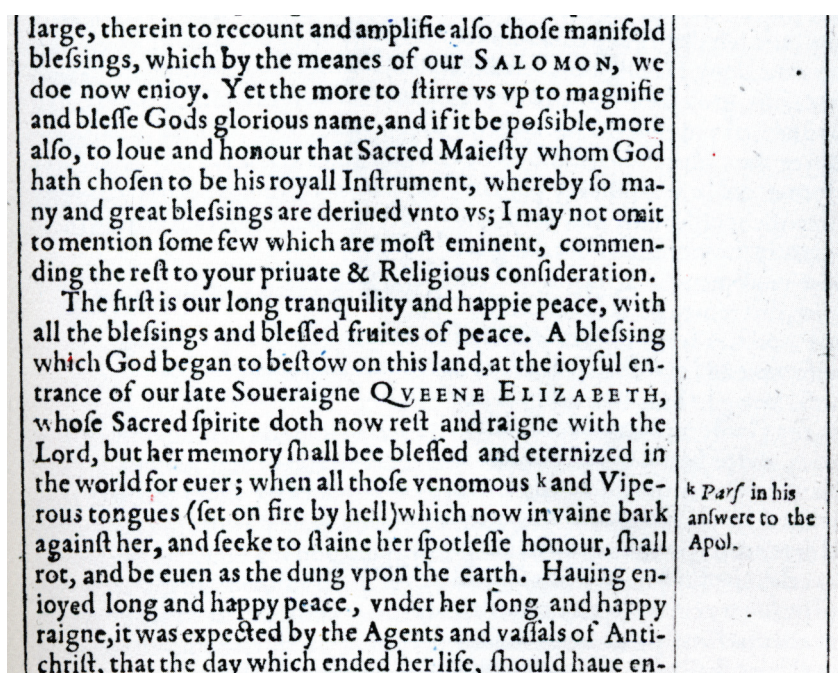 large, therein to recount and amplifie alſo thoſe manifold
bleſsings, which by the meanes of our SALOMON, we
doe now enioy. Yet the more to ſtirre vs vp to magnifie
and bleſſe Gods glorious name,and if it be poſsible,more
alſo, to loue and honour that Sacred Maieſty whom God
hath choſen to be his royall Inſtrument, whereby ſo ma-
ny and great bleſsings are deriued vnto vs; I may not omit
to mention ſome few which are moſt eminent, commen-
ding the reſt to your priuate & Religious conſideration.
The firſt is our long tranquility and happie peace, with
all the bleſsings and bleſſed fruites of peace. A bleſsing
which God began to beſtow on this land,at the ioyful en-
trance of our late Soueraigne QVEENE ELIZABETH,
whoſe Sacred ſpirite doth now reſt and raigne with the
Lord, but her memory ſhall bee bleſſed and eternized in
the world for euer; when all thoſe venomous k and Vipe-
rous tongues (ſet on fire by hell)which now in vaine bark
againſt her, and ſeeke to ſtaine her ſpotleſſe honour, ſhall
rot, and be euen as the dung vpon the earth. Hauing en-
ioyed long and happy peace, vnder her long and happy
raigne,it was expected by the Agents and vaſſals of Anti-
chriſt, that the day which ended her life, ſhould haue en-
k Parſ in his
anſwere to the
Apol.